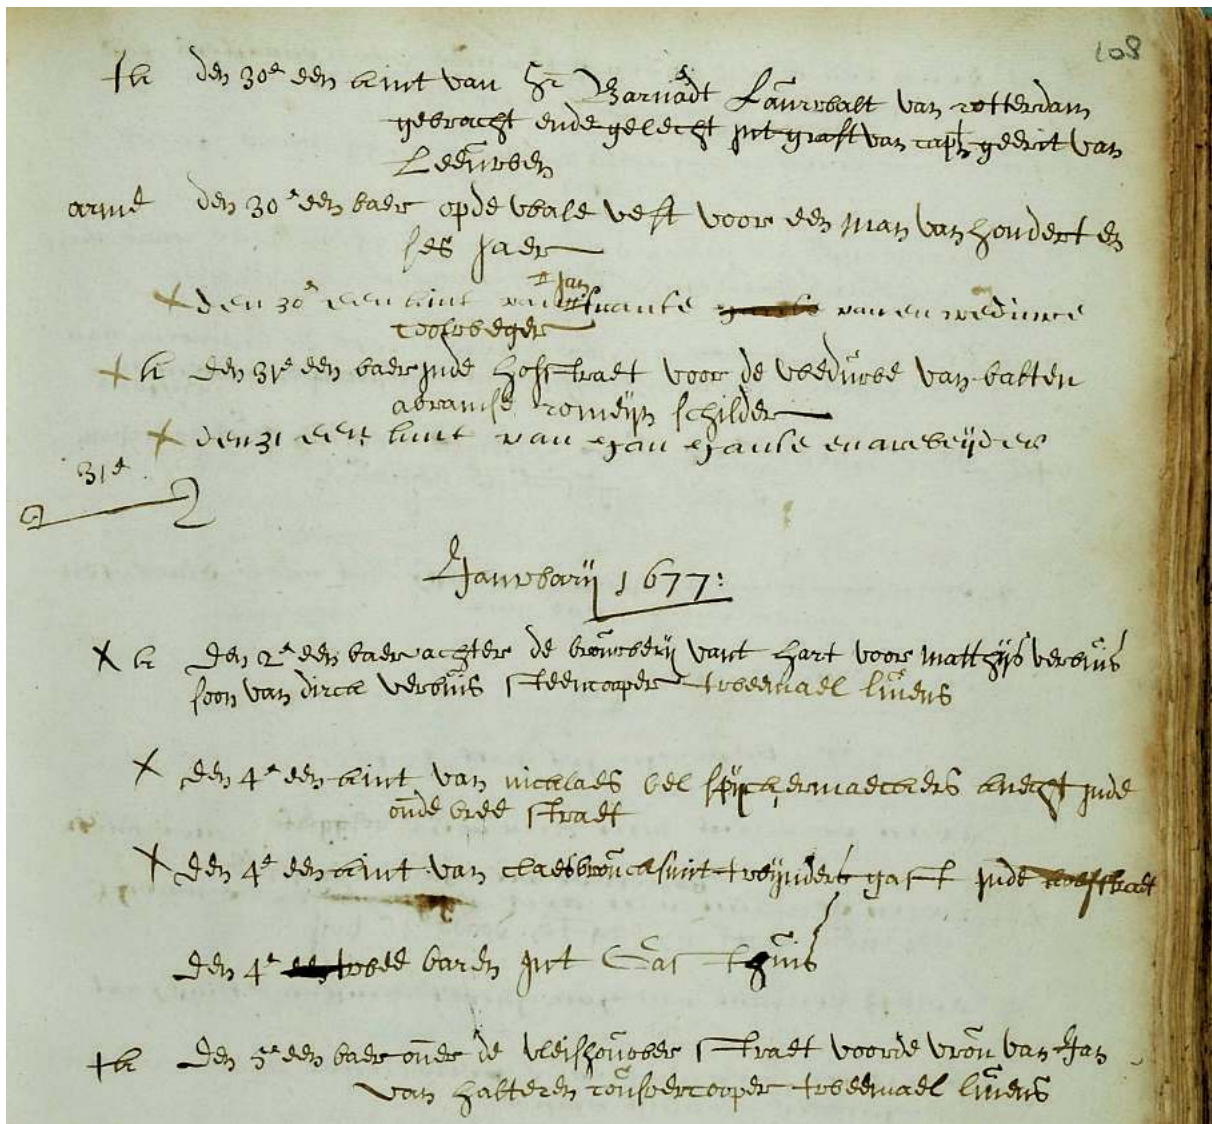 108
+ k den 30e een kint van Sr Barnadt Lauwbalt van rotterdam
gebracht ende gelecht int graft van capt geerit van
Leeuwen
arme den 30e een baer opde wale vest voor een man van hondert en
ses jaer
x den 30e een kint van Jan franse van en weduwe
x k den 31e een baer inde hofstraet voor de weduwe van batten
abramse romeijn schilder
x den 31 een kint van Jan Janse en arbeijder
31e
Januarij 1677:
x k den 2e een baer achter de brouwerij vant hart voor matthijs verbuis
soon van dirck verbuis steencooper tweemael luijens
x den 4e een kint van nicklaes bel spijckermaeckers knecht inde
oude bree straet
x den 4e een kint van claes gast inde
den 4e twee baren int Gasthuis
+ k den 5e een baer over de vleishouwer straet voorde vrou van Jan
van halteren cousvercooper tweemael luijens